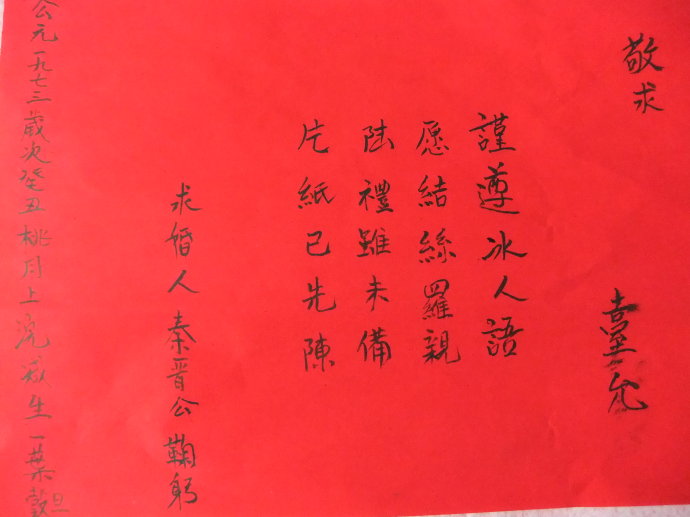 敬求
臺允
謹遵冰人語
愿結絲羅親
陆禮雖未備
片紙已先陳
求婚人秦晋公鞠躬
公元一九七三歲次癸丑桃月上浣
生一葉
旦